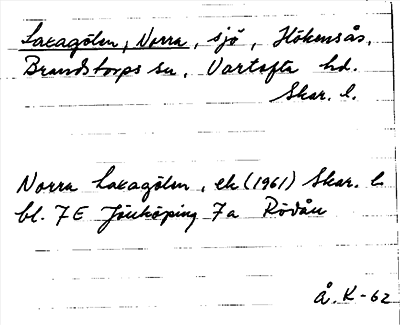 Laxagölen, Norra, sjö, Hökensås,
Brandstorps sn, Vartofta hd.
Skar. l.
Norra Laxagölen, ek (1961) Skar. l.
bl. 7E Jönköping 7a Rödån
Å. K-62